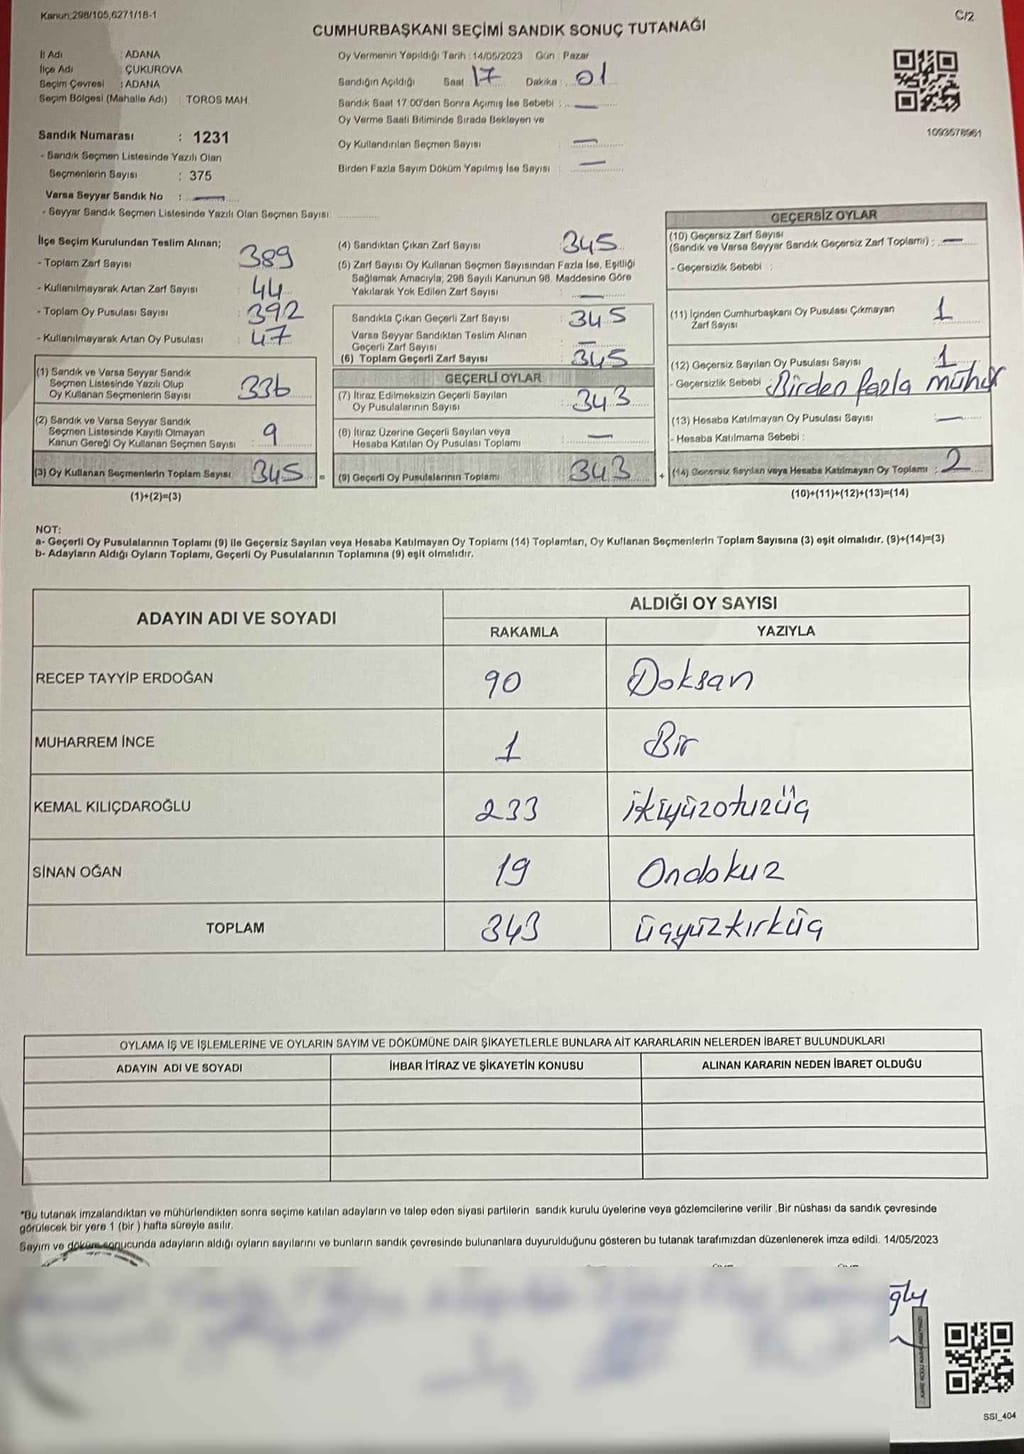 Kanun;298/105,6271/18-1
C/2
CUMHURBAŞKANI SEÇİMİ SANDIK SONUÇ TUTANAĞI
İl Adı : ADANA
İlçe Adı : ÇUKUROVA
Seçim Çevresi : ADANA
Seçim Bölgesi (Mahalle Adı) : TOROS MAH.
Sandık Numarası : 1231
- Sandık Seçmen Listesinde Yazılı Olan
Seçmenlerin Sayısı : 375
Varsa Seyyar Sandık No : —
- Seyyar Sandık Seçmen Listesinde Yazılı Olan Seçmen Sayısı:
Oy Vermenin Yapıldığı Tarih : 14/05/2023 Gün : Pazar
Sandığın Açıldığı Saat 17 Dakika : 01
Sandık Saat 17:00'den Sonra Açımış İse Sebebi : —
Oy Verme Saati Bitiminde Sırada Bekleyen ve
Oy Kullandırılan Seçmen Sayısı : —
Birden Fazla Sayım Döküm Yapılmış İse Sayısı : —
1093578961
İlçe Seçim Kurulundan Teslim Alınan;
- Toplam Zarf Sayısı : 389
- Kullanılmayarak Artan Zarf Sayısı : 44
- Toplam Oy Pusulası Sayısı : 392
- Kullanılmayarak Artan Oy Pusulası : 47
(1) Sandık ve Varsa Seyyar Sandık
Seçmen Listesinde Yazılı Olup
Oy Kullanan Seçmenlerin Sayısı : 336
(2) Sandık ve Varsa Seyyar Sandık
Seçmen Listesinde Kayıtlı Olmayan
Kanun Gereği Oy Kullanan Seçmen Sayısı : 9
(3) Oy Kullanan Seçmenlerin Toplam Sayısı : 345 =
(1)+(2)=(3)
(4) Sandıktan Çıkan Zarf Sayısı : 345
(5) Zarf Sayısı Oy Kullanan Seçmen Sayısından Fazla İse, Eşitliği
Sağlamak Amacıyla; 298 Sayılı Kanunun 98. Maddesine Göre
Yakılarak Yok Edilen Zarf Sayısı : —
Sandıkta Çıkan Geçerli Zarf Sayısı : 345
Varsa Seyyar Sandıktan Teslim Alınan
Geçerli Zarf Sayısı : —
(6) Toplam Geçerli Zarf Sayısı : 345
GEÇERLİ OYLAR
(7) İtiraz Edilmeksizin Geçerli Sayılan
Oy Pusulalarının Sayısı : 343
(8) İtiraz Üzerine Geçerli Sayılan veya
Hesaba Katılan Oy Pusulası Toplamı : —
(9) Geçerli Oy Pusulalarının Toplamı : 343 +
GEÇERSİZ OYLAR
(10) Geçersiz Zarf Sayısı
(Sandık ve Varsa Seyyar Sandık Geçersiz Zarf Toplamı) : —
- Geçersizlik Sebebi :
(11) İçinden Cumhurbaşkanı Oy Pusulası Çıkmayan
Zarf Sayısı : 1
(12) Geçersiz Sayılan Oy Pusulası Sayısı : 1
- Geçersizlik Sebebi : Birden fazla mühür
(13) Hesaba Katılmayan Oy Pusulası Sayısı : —
- Hesaba Katılmama Sebebi :
(14) Geçersiz Sayılan veya Hesaba Katılmayan Oy Toplamı : 2
(10)+(11)+(12)+(13)=(14)
NOT:
a- Geçerli Oy Pusulalarının Toplamı (9) ile Geçersiz Sayılan veya Hesaba Katılmayan Oy Toplamı (14) Toplamları, Oy Kullanan Seçmenlerin Toplam Sayısına (3) eşit olmalıdır. (9)+(14)=(3)
b- Adayların Aldığı Oyların Toplamı, Geçerli Oy Pusulalarının Toplamına (9) eşit olmalıdır.
ADAYIN ADI VE SOYADI
ALDIĞI OY SAYISI
RAKAMLA YAZIYLA
RECEP TAYYİP ERDOĞAN 90 Doksan
MUHARREM İNCE 1 Bir
KEMAL KILIÇDAROĞLU 233 ikiyüzotuzüç
SİNAN OĞAN 19 Ondokuz
TOPLAM 343 üçyüzkırküç
OYLAMA İŞ VE İŞLEMLERİNE VE OYLARIN SAYIM VE DÖKÜMÜNE DAİR ŞİKAYETLERLE BUNLARA AİT KARARLARIN NELERDEN İBARET BULUNDUKLARI
ADAYIN ADI VE SOYADI İHBAR İTİRAZ VE ŞİKAYETİN KONUSU ALINAN KARARIN NEDEN İBARET OLDUĞU
*Bu tutanak imzalandıktan ve mühürlendikten sonra seçime katılan adayların ve talep eden siyasi partilerin sandık kurulu üyelerine veya gözlemcilerine verilir .Bir nüshası da sandık çevresinde
görülecek bir yere 1 (bir ) hafta süreyle asılır.
Sayım ve döküm sonucunda adayların aldığı oyların sayılarını ve bunların sandık çevresinde bulunanlara duyurulduğunu gösteren bu tutanak tarafımızdan düzenlenerek imza edildi. 14/05/2023
SSI_404